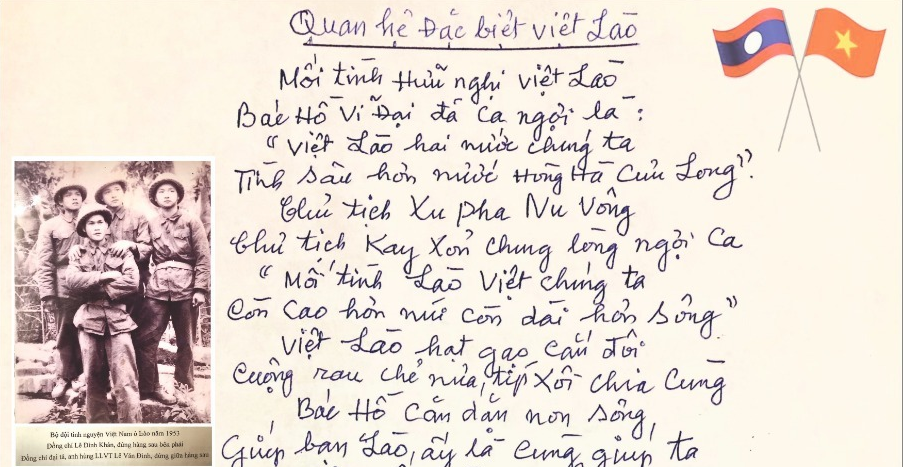 Quan hệ Đặc biệt việt Lào
Mối tình Hữu nghị việt Lào
Bác Hồ Vĩ Đại đã ca ngợi là:
"Việt Lào hai nước chúng ta
Tình sâu hơn nước Hồng Hà Cửu Long"?
Chủ tịch Xu pha Nu Vông
Chủ tịch Kay Xỏn chung lòng ngợi ca
"Mối tình Lào Việt chúng ta
Còn cao hơn núi còn dài hơn sông"
Việt Lào hạt gạo cắn đôi
Cuộng rau chẻ nửa, típ Xôi chia cùng
Bác Hồ căn dặn non sông,
Giúp bạn Lào, ấy là cũng giúp ta
Bộ đội tình nguyện Việt Nam ở Lào năm 1953
Đồng chí Lê Đình Khán, đứng hàng sau bên phải
Đồng chí đại tá, anh hùng LLVT Lê Văn Đình, đứng giữa hàng sau